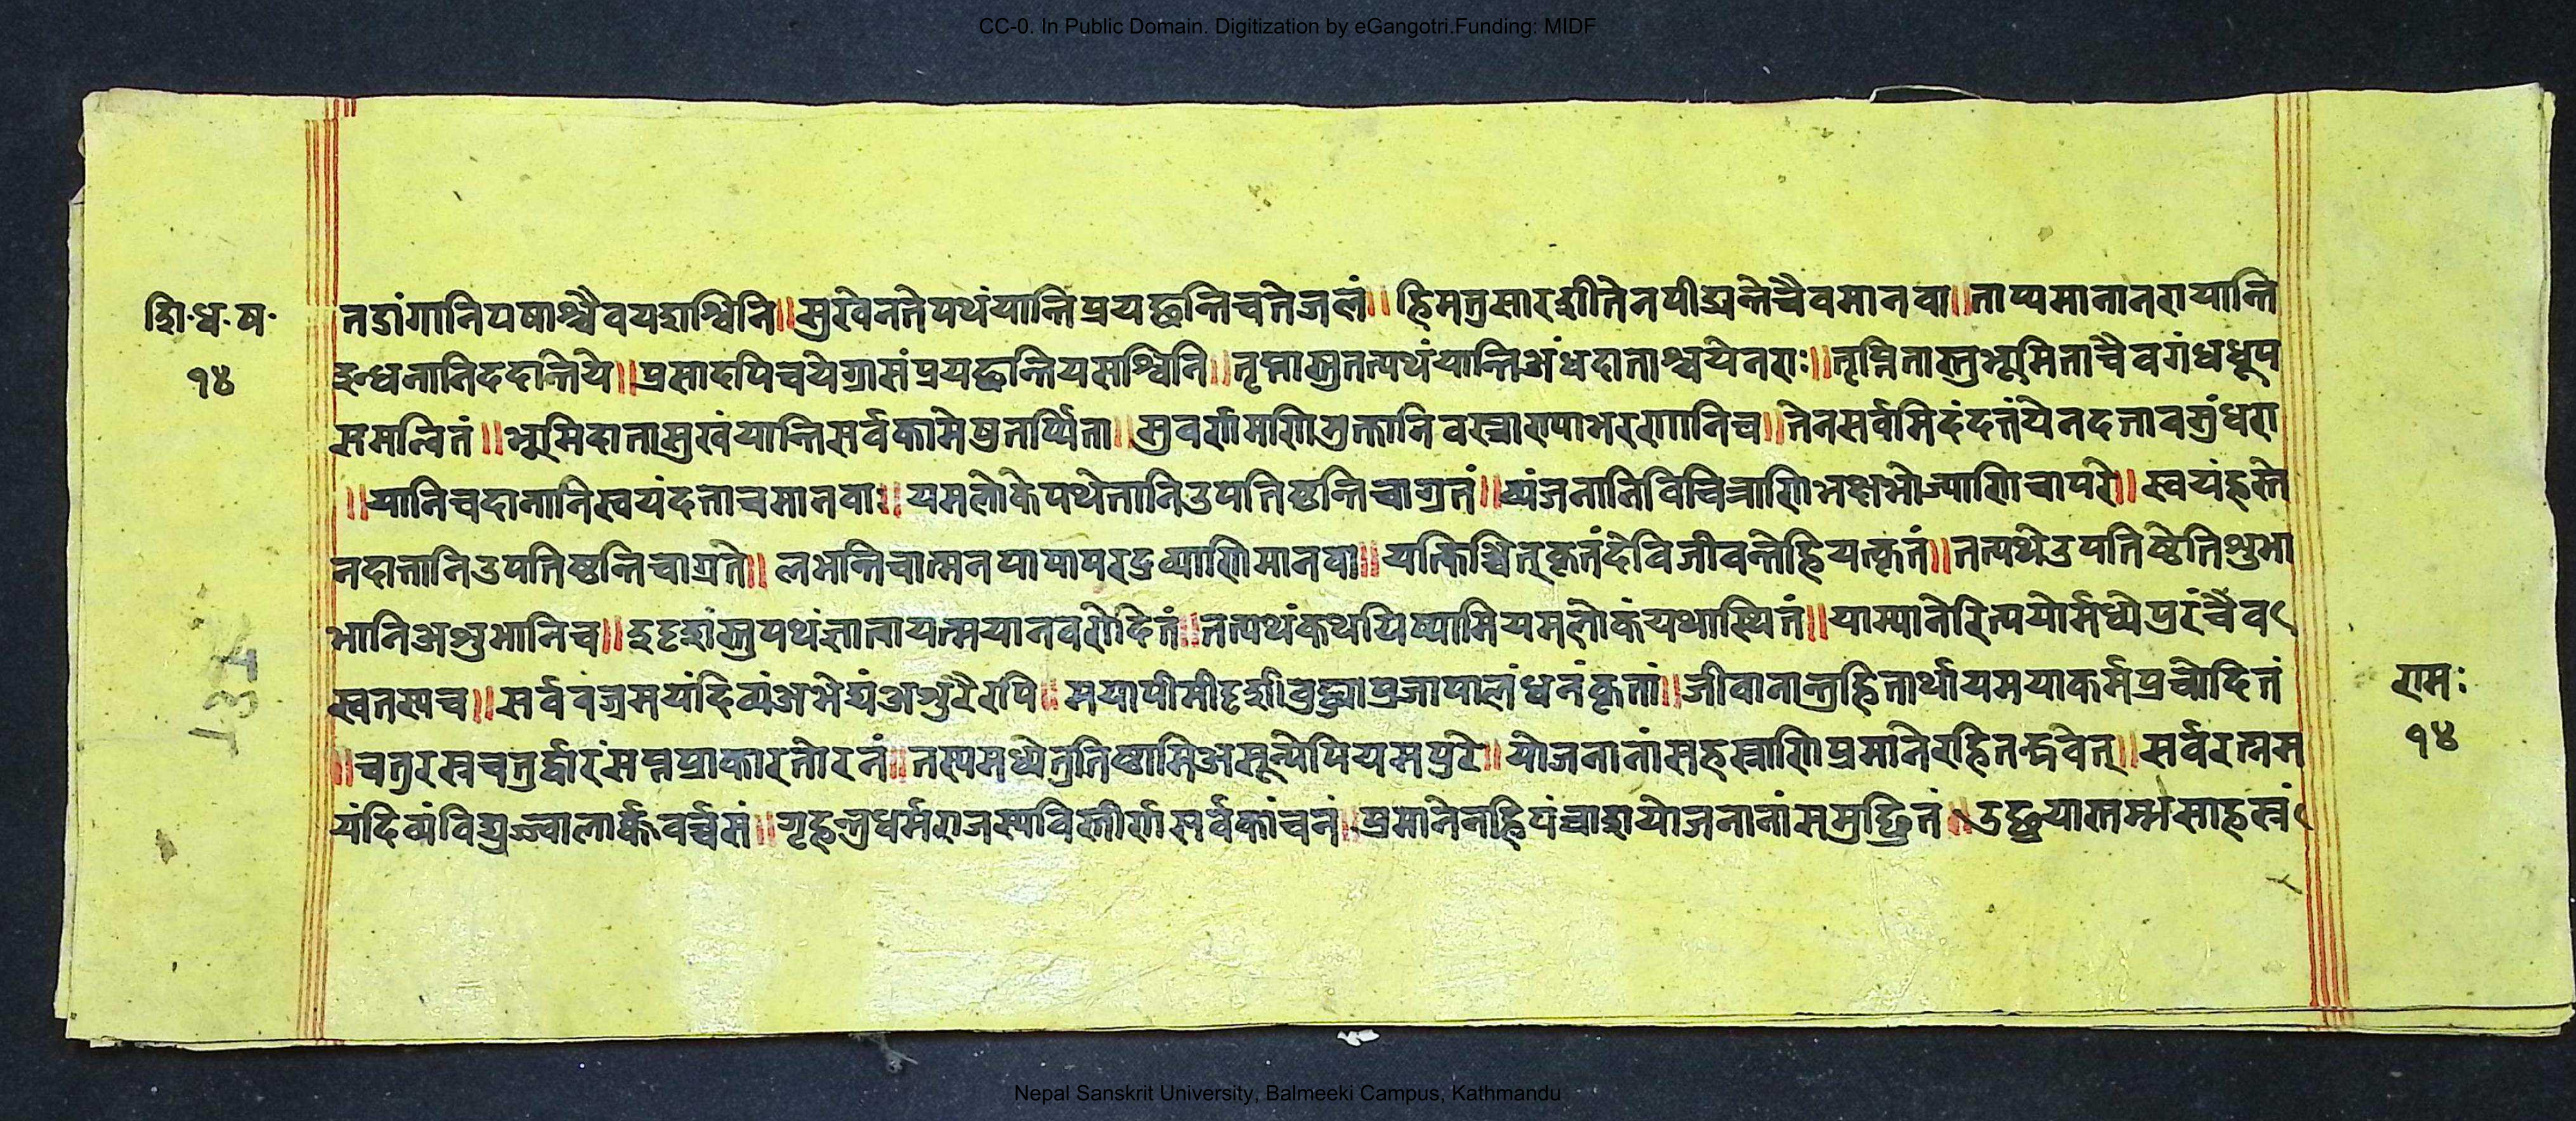 CC-0. In Public Domain. Digitization by eGangotri.Funding: MIDF
शि·ध·ष·
१४
तडांगानिपषाश्चैवयद्दाश्विनि॥सुखेनतेपथंयान्तिप्रयछन्तिचतेजलं॥हिमतुसारशीतेनपीड्यन्तेचैवमानवा॥ताप्यमानानरायान्ति
इन्धनानिददन्तिये॥प्रसादपिचयेग्रासंप्रयछन्तियसश्विनि॥तृप्तास्तुतत्पथंयान्तिअंधदाताश्चयेनराः॥तृप्नितास्तुभूमिताचैवगंधधूप
समन्वितं॥भूमिदातासुखंयान्तिसर्वकामेषुतर्प्पिता॥सुवर्णमाणिमुक्तानिवस्त्राण्याभरणानिच॥तेनसर्वमिदंदत्तंयेनदत्तावसुंधरा
॥यानिचदानानिस्वयंदत्ताचमानवाः॥यमलोकेपथेतानिउपतिष्ठन्तिचाग्रतं॥व्यंजनानिविचित्राणिभक्षभोज्याणिचापरे॥स्वयंहस्ते
नदात्तानिउपतिष्ठन्तिचाग्रते॥लभन्तिचात्मनपापापरद्रव्याणिमानवा॥यत्किञ्चित्कृतंदेविजीवन्तेहियत्कृतं॥तत्पथेउपतिष्ठेतिशुभा
भानिअशुभानिच॥तत्पथंकथयिष्यामियमलोकंयथास्थितं॥याम्यानेरित्ययोर्मध्येपुरंचैव
स्वतस्यच॥सर्ववज्रमयंदिव्यंअभेद्यंअशुरैरपि॥मयापीमीदृशीबुद्ध्याप्रजापालंधनंकृतां॥जीवानान्तुहितार्थायमयाकर्मप्रचोदितं
॥चतुरस्रचतुर्द्वारंसप्तप्राकारतोरनं॥तस्यमध्येतुतिष्ठामिअसून्येपियमपुरे॥योजनानांसहस्राणिप्रमानेरहितद्भवेत्॥सर्वरत्नम
यंदिव्यंविद्युज्ज्वालार्क्कवर्च्चसं॥गृहन्तुधर्मराजस्यविस्तीर्णसर्वकांचनं॥प्रमानेनहिपंचाशयोजनानांसमुछ्रितं॥उछ्रयास्तम्भसाहस्रं
रामः
१४
Nepal Sanskrit University, Balmeeki Campus, Kathmandu